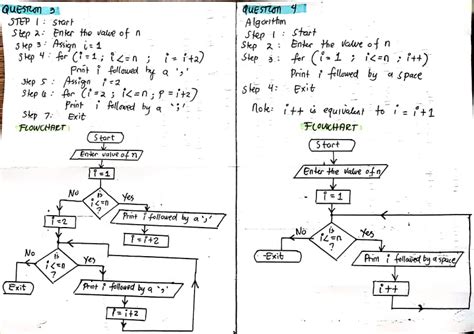 QUESTION 3
STEP 1 : Start
Step 2: Enter the value of n
Step 3: Assign i=1
Step 4: for (i=1; i<=n; i=i+2)
Print i followed by a ','
Step 5: Assign i=2
Step 6: for (i=2; i<=n; i=i+2)
Print i followed by a ';'
Step 7: Exit
FLOWCHART
Start
Enter value of n
i=1
No
is
i<=n
?
Yes
Print i followed by a ','
i=i+2
i=2
No
is
i<=n
?
Yes
Exit
Print i followed by a ';'
i=i+2
QUESTION 4
Algorithm
Step 1 : Start
Step 2: Enter the value of n
Step 3: for (i=1; i<=n; i++)
Print i followed by a space
Step 4: Exit
Note: i++ is equivalent to i=i+1
FLOWCHART
Start
Enter the value of n
i=1
No
is
i<=n
?
Yes
Exit
Print i followed by a space
i++